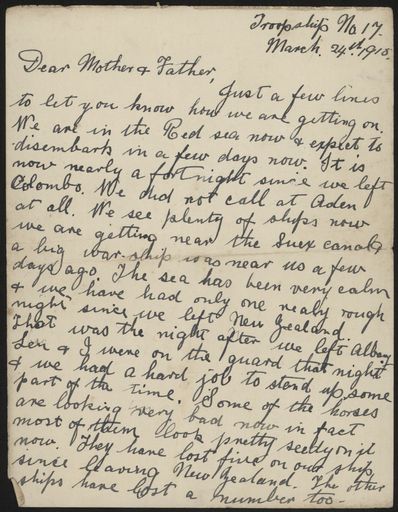 Troopship No. 17.
March. 24th 1915.
Dear Mother & Father,
Just a few lines
to let you know how we are getting on.
We are in the Red sea now & expect to
disembark in a few days now. It is
now nearly a fortnight since we left
Colombo. We did not call at Aden
at all. We see plenty of ships now
we are getting near the Suex canal &
a big war ship was near us a few
days ago. The sea has been very calm
& we have had only one realy rough
night since we left New Zealand.
That was the night after we left Albany
Len & I were on the guard that night
& we had a hard job to stand up, some
part of the time. Some of the horses
are looking very bad now in fact
most of them look pretty seedy
now. They have lost five on our ship
since leaving New Zealand. The other
ships have lost a number too.